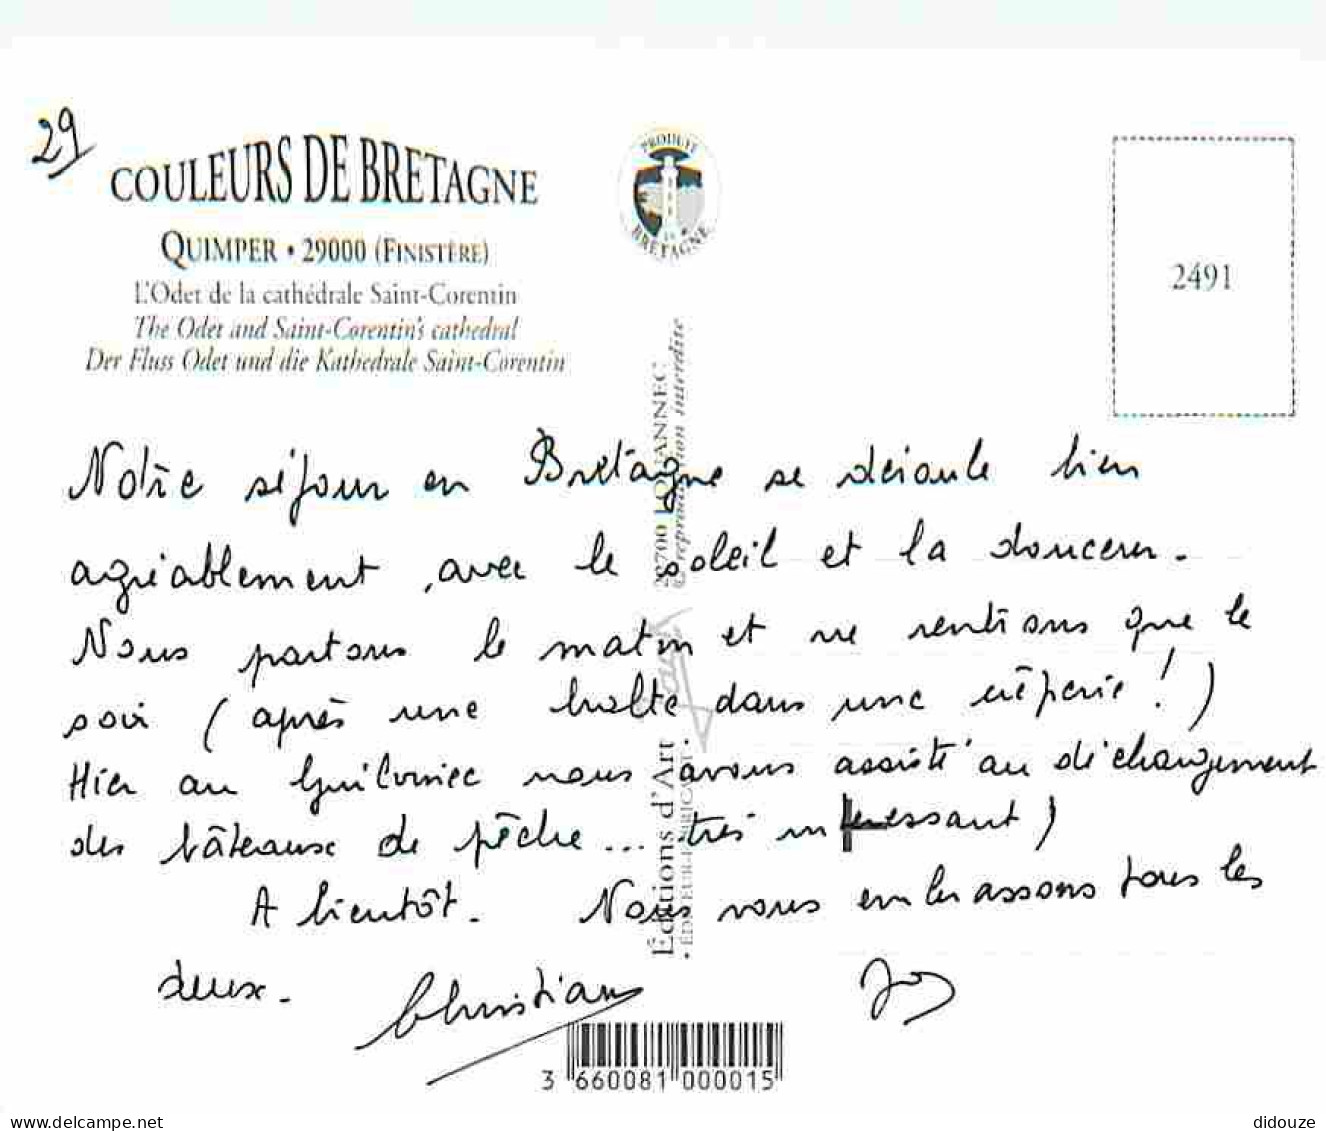 29
COULEURS DE BRETAGNE
QUIMPER • 29000 (FINISTÈRE)
L'Odet de la cathédrale Saint-Corentin
The Odet and Saint-Corentin's cathedral
Der Fluss Odet und die Kathedrale Saint-Corentin
PRODUIT
EN
BRETAGNE
2491
Notre séjour en Bretagne se déroule bien
agréablement, avec le soleil et la douceur.
Nous partons le matin et ne rentrons que le
soir (après une halte dans une crêperie !)
Hier au Guilvinec nous avons assisté au déchargement
des bâteaux de pêche... très intéressant)
A bientôt. Nous vous embrassons tous les
deux. Christiane Jos
Éditions d'Art Jack 22700 LOUANNEC
• ÉDITEUR-FABRICANT • © reproduction interdite
3 660081 000015
delcampe.net
didouze